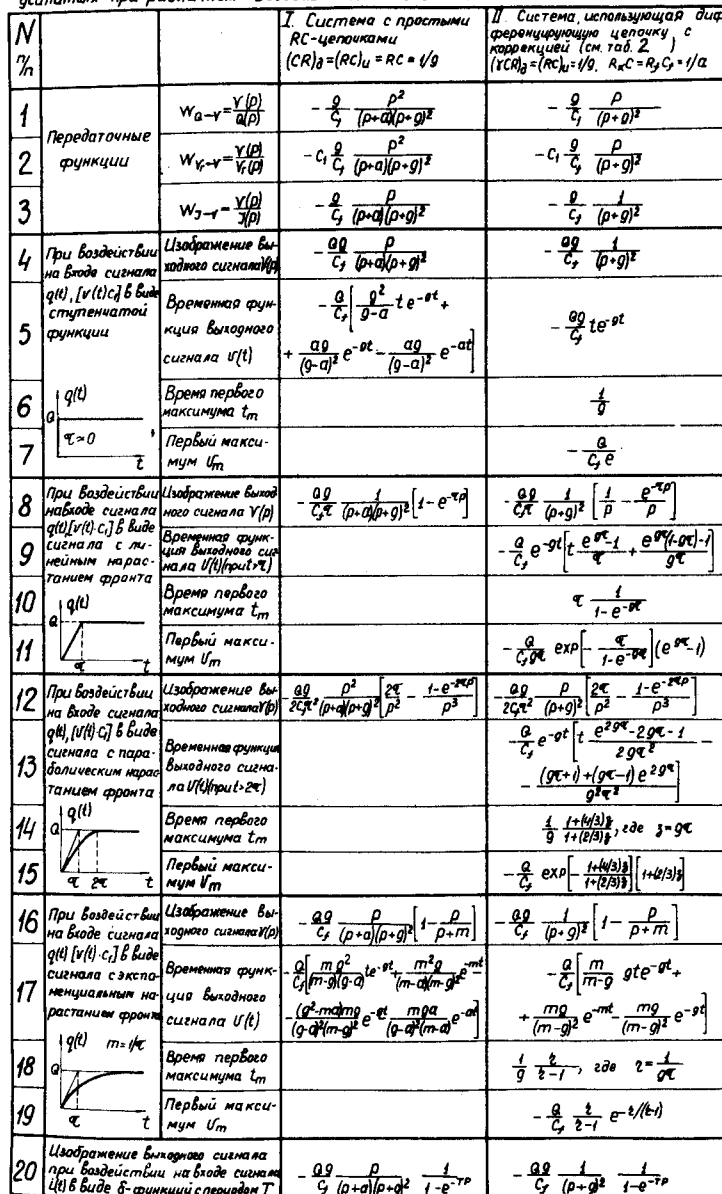 N п/п
I. Система с простыми RC-цепочками
(CR)д=(RC)и=RC=1/g
II. Система, использующая диф
ференцирующую цепочку с
коррекцией (см. таб. 2 )
(γCR)д=(RC)и=1/g. RкC=RfCf=1/a
Передаточные функции
1
W Q-V = V(p)/Q(p)
- g/Cf p²/((p+a)(p+g)²)
- g/Cf p/(p+g)²
2
W Vг-V = V(p)/Vг(p)
- C1 g/Cf p²/((p+a)(p+g)²)
- C1 g/Cf p/(p+g)²
3
W J-V = V(p)/J(p)
- g/Cf p/((p+a)(p+g)²)
- g/Cf 1/(p+g)²
При воздействии
на входе сигнала
q(t), [v(t)C1] в виде
ступенчатой
функции
q(t)
Q
τ≈0
t
4
Изображение вы-
ходного сигнала V(p)
- Qg/Cf p/((p+a)(p+g)²)
- Qg/Cf 1/(p+g)²
5
Временная фун-
кция выходного
сигнала υ(t)
- Q/Cf [ g²/(g-a) t e^-gt +
+ ag/(g-a)² e^-gt - ag/(g-a)² e^-at ]
- Qg/Cf te^-gt
6
Время первого
максимума tm
1/g
7
Первый макси-
мум Um
- Q/(Cf e)
При воздействии
на входе сигнала
q(t)[v(t)·C1] в виде
сигнала с ли-
нейным нарас-
танием фронта
q(t)
Q
τ
t
8
Изображение выход
ного сигнала V(p)
- Qg/(Cfτ) 1/((p+a)(p+g)²) [1-e^-τp]
- Qg/(Cfτ) 1/(p+g)² [1/p - e^-τp/p]
9
Временная функ-
ция выходного сиг
нала U(t)(при t>τ)
- Q/Cf e^-gt [t (e^gτ-1)/τ + (e^gτ(1-gτ)-1)/gτ]
10
Время первого
максимума tm
τ 1/(1-e^-gτ)
11
Первый макси-
мум Um
- Q/(Cf gτ) exp[- τ/(1-e^-gτ)](e^gτ-1)
При воздействии
на входе сигнала
q(t), [U(t)·C1] в виде
сигнала с пара-
болическим нарас-
танием фронта
q(t)
Q
τ 2τ t
12
Изображение вы-
ходного сигнала V(p)
- Qg/(2Cfτ²) p²/((p+a)(p+g)²) [2τ/p² - (1-e^-2τp)/p³]
- Qg/(2Cfτ²) p/(p+g)² [2τ/p² - (1-e^-2τp)/p³]
13
Временная функция
выходного сигна-
ла U(t)(при t>2τ)
- Q/Cf e^-gt [t (e^2gτ-2gτ-1)/2gτ² -
- ((gτ+1)+(gτ-1)e^2gτ)/g²τ²]
14
Время первого
максимума tm
1/g (1+(4/3)z)/(1+(2/3)z), где z=gτ
15
Первый макси-
мум Um
- Q/Cf exp[- (1+(4/3)z)/(1+(2/3)z)][1+(2/3)z]
При воздействии
на входе сигнала
q(t) [v(t)·C1] в виде
сигнала с экспо-
ненциальным на-
растанием фронта
q(t) m=1/τ
Q
τ t
16
Изображение вы-
ходного сигнала V(p)
- Qg/Cf p/((p+a)(p+g)²) [1- p/(p+m)]
- Qg/Cf 1/(p+g)² [1- p/(p+m)]
17
Временная функ-
ция выходного
сигнала U(t)
- Q/Cf [mg²/((m-g)(g-a)) te^-gt + m²g/((m-a)(m-g)²) e^-mt
- (g²-ma)mg/((g-a)²(m-g)²) e^-gt - mga/((g-a)²(m-a)) e^-at]
- Q/Cf [m/(m-g) gte^-gt +
+ mg/(m-g)² e^-mt - mg/(m-g)² e^-gt]
18
Время первого
максимума tm
1/g z/(z-1), где z= 1/gτ
19
Первый макси-
мум Um
- Q/Cf z/(z-1) e^-z/(z-1)
20
Изображение выходного сигнала
при воздействии на входе сигнала
i(t) в виде δ-функций с периодом T
- Qg/Cf p/((p+a)(p+g)²) 1/(1-e^-Tp)
- Qg/Cf 1/(p+g)² 1/(1-e^-Tp)